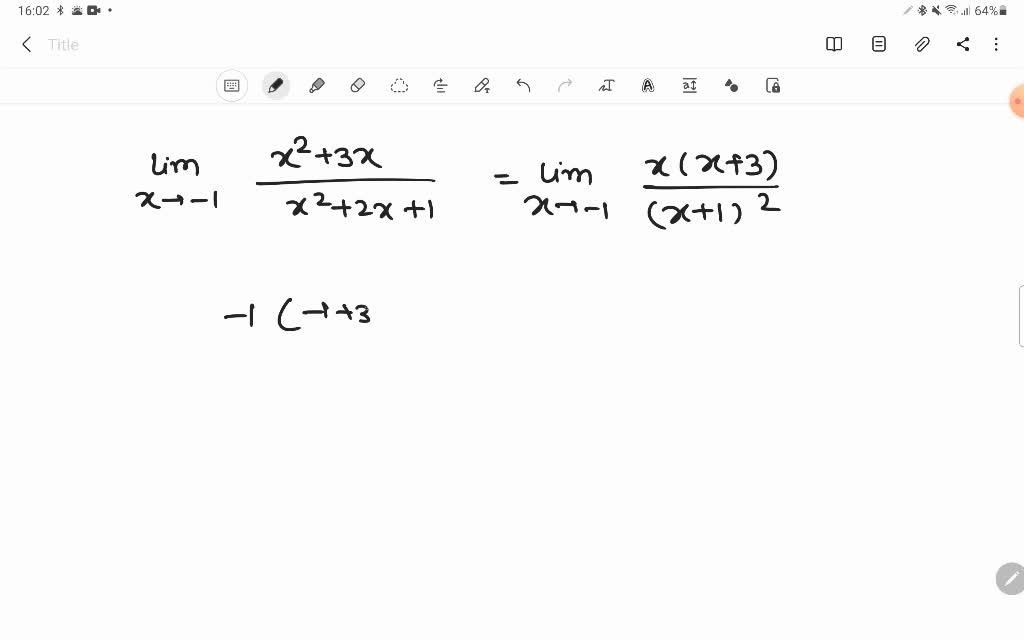 16:02 64%
Title
lim x→-1 (x²+3x)/(x²+2x+1) = lim x→-1 x(x+3)/(x+1)²
-1 (-1+3